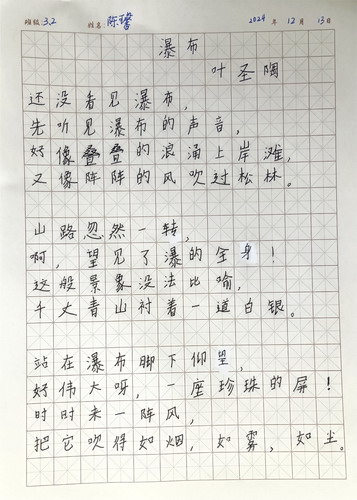 班级:3.2 姓名:陈璨 2024 年 12 月 13日
瀑布
叶圣陶
还没看见瀑布,
先听见瀑布的声音,
好像叠叠的浪涌上岸滩,
又像阵阵的风吹过松林。
山路忽然一转,
啊,望见了瀑的全身!
这般景象没法比喻,
千丈青山衬着一道白银。
站在瀑布脚下仰望,
好伟大呀,一座珍珠的屏!
时时来一阵风,
把它吹得如烟,如雾,如尘。